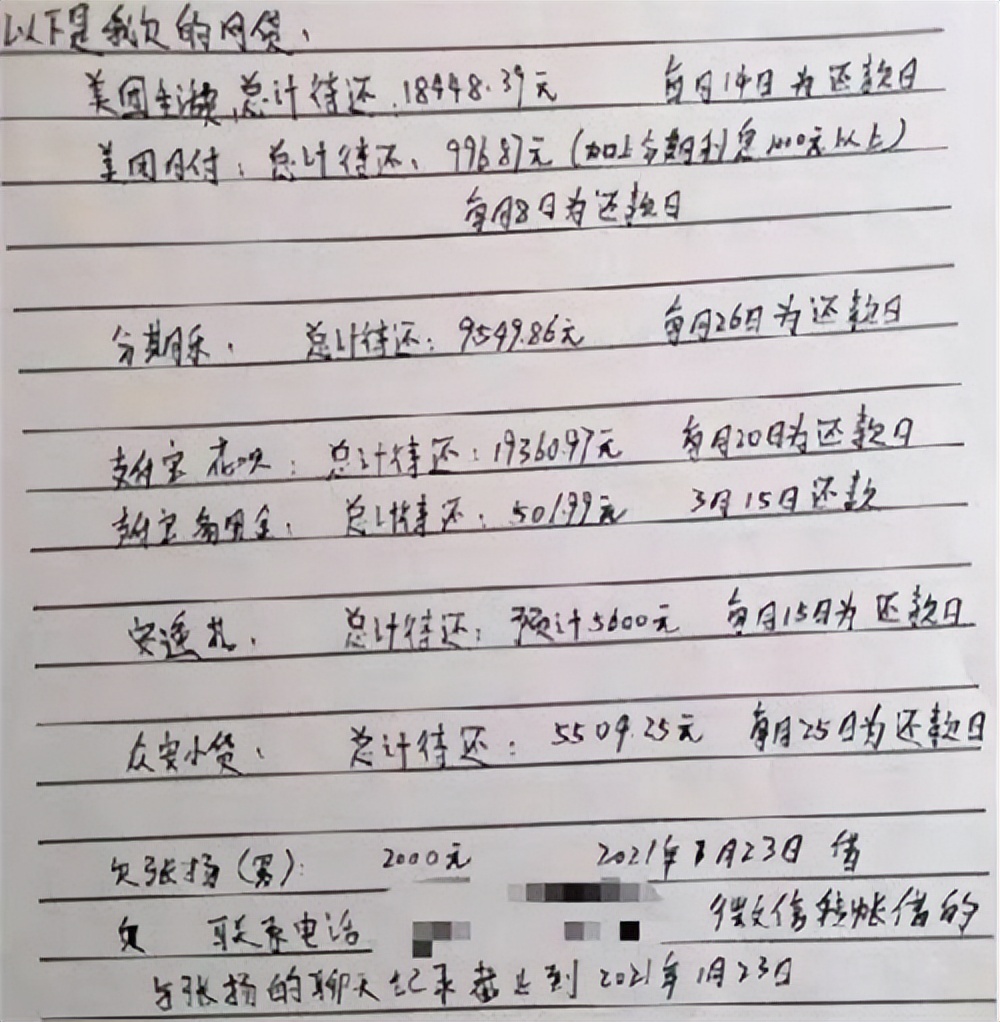 以下是我欠的网贷:
美团生活费,总计待还:18448.39元 每月14日为还款日
美团月付:总计待还:9968.7元(加上分期利息1000元以上)
每月8日为还款日
分期乐: 总计待还:9549.86元 每月26日为还款日
支付宝花呗:总计待还:19360.97元 每月20日为还款日
支付宝备用金:总计待还:501.99元 3月15日还款
安逸花: 总计待还:预计5600元 每月15日为还款日
众安小贷: 总计待还:5509.25元 每月25日为还款日
欠张扬(男): 2000元 2021年1月23日借
欠 联系电话 微信转帐借的
与张扬的聊天纪录截止到2021年1月23日